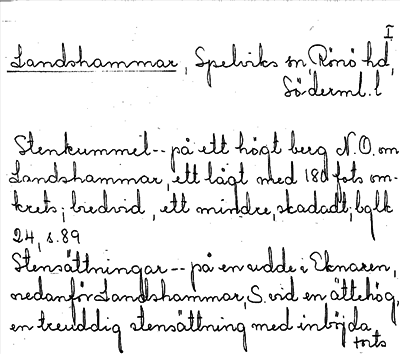 I
Landshammar, Spelviks sn Rönö hd,
Söderml. l
Stenkummel -- på ett högt berg N.O. om
Landshammar, ett lågt med 180 fots om-
krets; bredvid, ett mindre, skadadt; bglk
24, s.89
Stensättningar -- på en udde i Eknaren,
nedanför Landshammar, S. vid en ättehög,
en treuddig stensättning med inböjda
forts